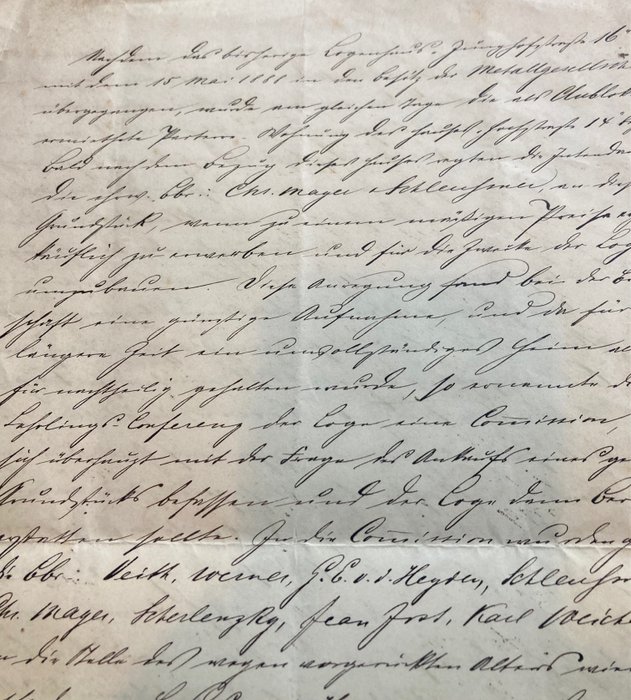 Nachdem das bisherige Logenhaus, Junghofstraße 16
mit dem 15 Mai 1881 in den Besitz der Metallgesellsch
übergegangen, wurde am gleichen Tage die als
ermiethete Parterre-Wohnung des Hauses Hochstraße 14
Bald nach dem Bezug dieses Hauses regten die Intenda
die ehrw. Bbr∴ Chr. Mayer & Schleussner, an, dieß
Grundstück, wenn zu einem mäßigen Preise er
käuflich zu erwerben und für die Zwecke der Log
umzubauen. Diese Anregung fand bei der B
schaft eine günstige Aufnahme, und da für
längere Zeit ein unvollständiges Heim al
für nachtheilig gehalten wurde, so ernannte d
Lehrlings-Conferenz der Loge eine Com̅ission,
sich überhaupt mit der Frage des Ankaufs eines ge
Grundstücks befassen und der Loge dann Ber
erstatten sollte. In die Com̅ission wurden g
die Bbr∴ Veith, Werner, G. E. v. d. Heyden, Schleuss
Chr. Mayer, Scherlenzky, Jean Jost, Karl
an die Stelle des wegen vorgerückten Alters wie